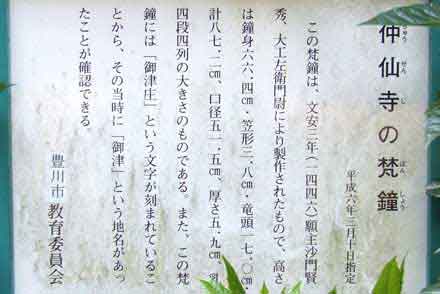 仲仙寺の梵鐘
ちゅうせんじ ぼんしょう
平成六年三月十日指定
この梵鐘は、文安三年（一四四六）願主沙門賢
秀、大工左衛門尉により製作されたもので、高さ
は鐘身六六．四㎝・笠形三．八㎝・竜頭一七．〇㎝・
計八七．二㎝、口径五二．五㎝、厚さ五．九㎝、乳
四段四列の大きさのものである。また、この梵
鐘には「御津庄」という文字が刻まれているこ
とから、その当時に「御津」という地名があっ
たことが確認できる。
豊川市教育委員会